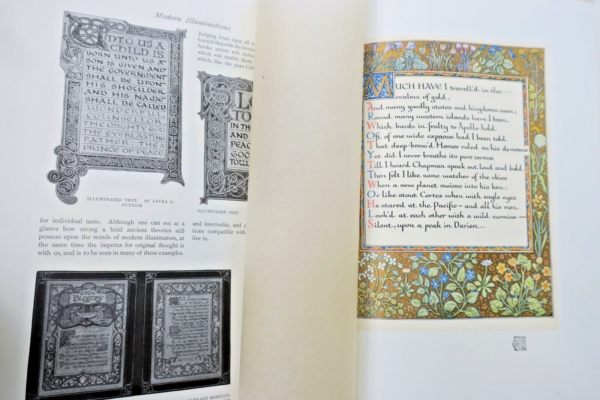 Modern Illuminations
UNTO US A
CHILD IS
BORN UNTO US A
SON IS GIVEN AND
THE GOVERNMENT
SHALL BE UPON
HIS SHOULDER
AND HIS NAME
SHALL BE CALLED
WONDERFUL
COUNSELLOR
THE MIGHTY GOD
THE EVERLASTING
FATHER THE
PRINCE OF PEACE
ILLUMINATED TEXT. BY LAURA G.
for individual taste. Although one can see at a
glance how strong a hold ancient theories still
possess upon the minds of modern illuminators, at
the same time the impetus for original thought is
with us, and is to be seen in many of these examples.
judging from
books, artists
which will enable
which, like the
GLORY
IN THE
AND
PEACE
GOOD
ILLUMINATED TEXT
and irrevocable, and
tions compatible with
live in.
MUCH HAVE I travell'd in the
realms of gold,
And many goodly states and kingdoms seen;
Round many western islands have I been,
Which bards in fealty to Apollo hold.
Oft of one wide expanse had I been told
That deep-brow'd Homer ruled as his demesne
Yet did I never breathe its pure serene
Till I heard Chapman speak out loud and bold.
Then felt I like some watcher of the skies
When a new planet swims into his ken;
Or like stout Cortez when with eagle eyes
He stared at the Pacific – and all his men
Look'd at each other with a wild surmise –
Silent, upon a peak in Darien.